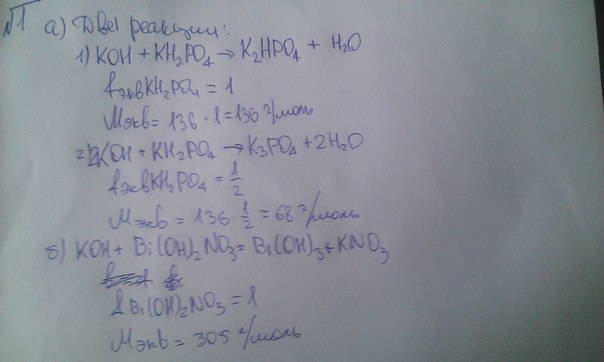 №1 а) Две реакции:
1) KOH + KH₂PO₄ → K₂HPO₄ + H₂O
fэквKH₂PO₄ = 1
Mэкв = 136 · 1 = 136 г/моль
2) 2KOH + KH₂PO₄ → K₃PO₄ + 2H₂O
fэквKH₂PO₄ = 1/2
Mэкв = 136 · 1/2 = 68 г/моль
б) KOH + Bi(OH)₂NO₃ = Bi(OH)₃ + KNO₃
f Bi(OH)₂NO₃ = 1
Mэкв. = 305 г/моль